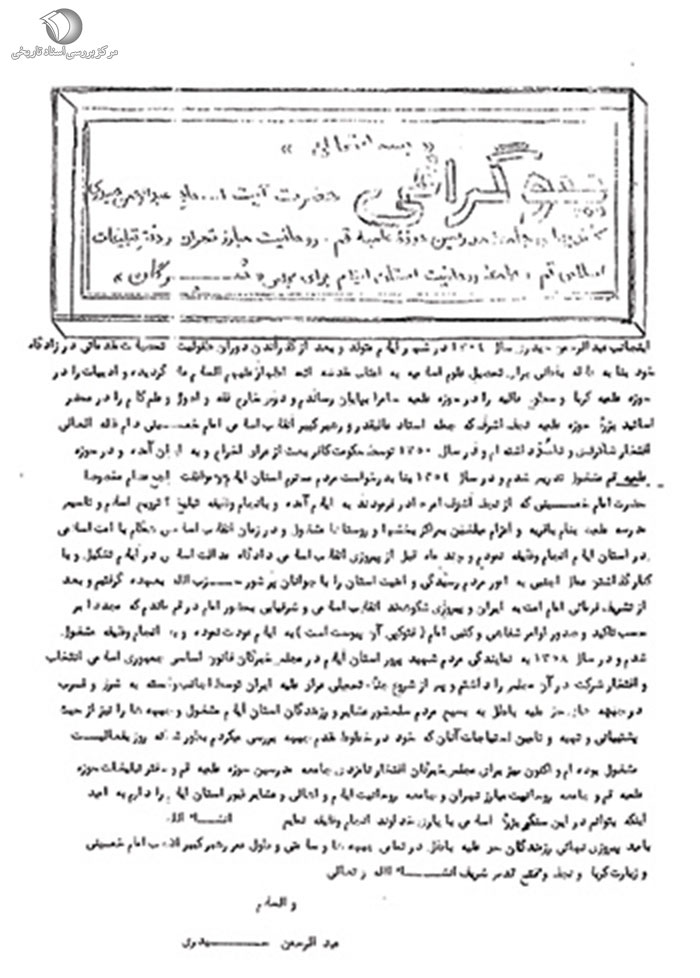 مرکز بررسی اسناد تاریخی
« بسمه تعالی »
بیوگرافی حضرت آیت ا... حاج عبدالرحمن حیدری
کاندیدای جامعه مدرسین حوزه علمیه قم ، روحانیت مبارز تهران و دفتر تبلیغات
اسلامی قم ، جامعه روحانیت استان ایلام برای مجلس « خبرگان »
اینجانب عبدالرحمن حیدری سال ۱۳۰۴ در شهر ایلام متولد و بعد از گذراندن دوران طفولیت تحصیلات مقدماتی در زادگاه
خود بنا به برای تحصیل علوم اسلامیه به اعتاب مقدسه ائمه اطهار علیهم السلام گردیده و ادبیات را در
حوزه علمیه کربلا و عالیه را در حوزه علمیه سامرا بپایان رساندم و دوره خارج فقه و اصول و علم کلام را در محضر
اساتید بزرگ حوزه علمیه نجف اشرف که جمله استاد عالیقدر و رهبر کبیر انقلاب اسلامی امام خمینی دام ظله العالی
افتخار شاگردی و داشته ام و در سال ۱۳۵۰ توسط حکومت کافر بعث از عراق اخراج و به ایران آمده و در حوزه
علمیه قم مشغول تدریس شدم و در سال ۱۳۵۴ بنا بدرخواست مردم محترم استان ایلام و موافقت مراجع عظام مخصوصا
حضرت امام خمینی که از نجف اشرف امر صادر فرمودند به ایلام آمده و بانجام وظیفه تبلیغ و ترویج اسلام و تاسیس
مدرسه علمیه بنام باقریه و اعزام مبلغین بمراکز بخشها و روستاها مشغول و در زمان انقلاب اسلامی همگام با امت اسلامی
در استان ایلام انجام وظیفه نمودم و چند ماه قبل از پیروزی انقلاب اسلامی دادگاه عدالت اسلامی در ایلام تشکیل و با
کنار گذاشتن عمال اجنبی به امور مردم رسیدگی و امنیت استان را با جوانان پرشور حزب الله بعهده گرفتیم و بعد
از تشریف فرمائی امام امت به ایران و پیروزی شکوهمند انقلاب اسلامی و شرفیابی بحضور امام در قم ماندم که مجددا بر
حسب تاکید و صدور اوامر شفاهی و کتبی امام ( فتوکپی آن پیوست است ) به ایلام عودت نموده و به انجام وظیفه مشغول
شدم و در سال ۱۳۵۸ به نمایندگی مردم شهید پرور استان ایلام در مجلس خبرگان قانون اساسی جمهوری اسلامی انتخاب
و افتخار شرکت در آن مجلس را داشتم و پس از شروع جنگ تحمیلی عراق علیه ایران توسط اجانب وابسته به شرق و غرب
در جبهه های حق علیه باطل به بسیج مردم سلحشور عشایر و رزمندگان استان ایلام مشغول و جبهه ها را نیز از حیث
پشتیبانی و تهیه و تامین احتیاجات آنان که خود در خطوط مقدم جبهه بررسی میکردم بطور شبانه روز بفعالیت
مشغول بوده ام و اکنون نیز برای مجلس خبرگان افتخار نامزدی جامعه مدرسین حوزه علمیه قم و دفتر تبلیغات حوزه
علمیه قم و جامعه روحانیت مبارز تهران و جامعه روحانیت ایلام و اهالی و عشایر غیور استان ایلام را دارم به امید
اینکه بتوانم در این سنگر بزرگ اسلامی با یاری خداوند انجام وظیفه نمایم انشاء الله
بامید پیروزی نهائی رزمندگان حق علیه باطل در تمامی جبهه ها و سلامتی و طول عمر رهبر کبیر انقلاب امام خمینی
و زیارت کربلا و نجف و فتح قدس شریف انشاء الله تعالی
و السلام
عبد الرحمن حیدری